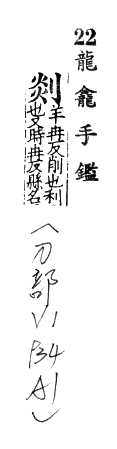 22 龍龕手鑑
剡 羊冉反削也利
也又時冉反縣名
(刀部 V1 134 A1)